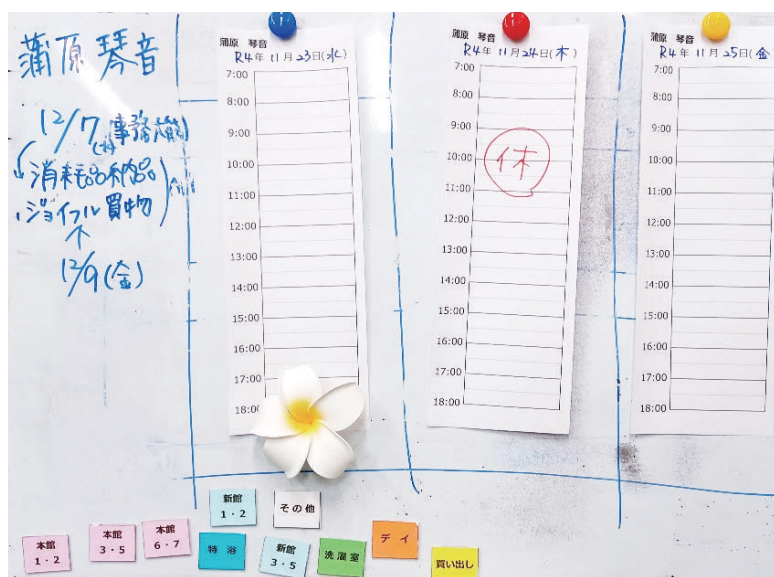 蒲原琴音
12/7
消耗品納品
ジョイフル買物
12/9(金)
蒲原 琴音
R4年 11月 23日(水)
7:00
8:00
9:00
10:00
11:00
12:00
13:00
14:00
15:00
16:00
17:00
18:00
蒲原 琴音
R4年 11月 24日(木)
7:00
8:00
9:00
10:00
11:00
12:00
13:00
14:00
15:00
16:00
17:00
18:00
休
蒲原 琴音
R4年 11月 25日(金)
7:00
8:00
9:00
10:00
11:00
12:00
13:00
14:00
15:00
16:00
17:00
18:00
本館
1・2
本館
3・5
本館
6・7
新館
1・2
特 浴
その他
新館
3・5
洗濯室
デイ
買い出し